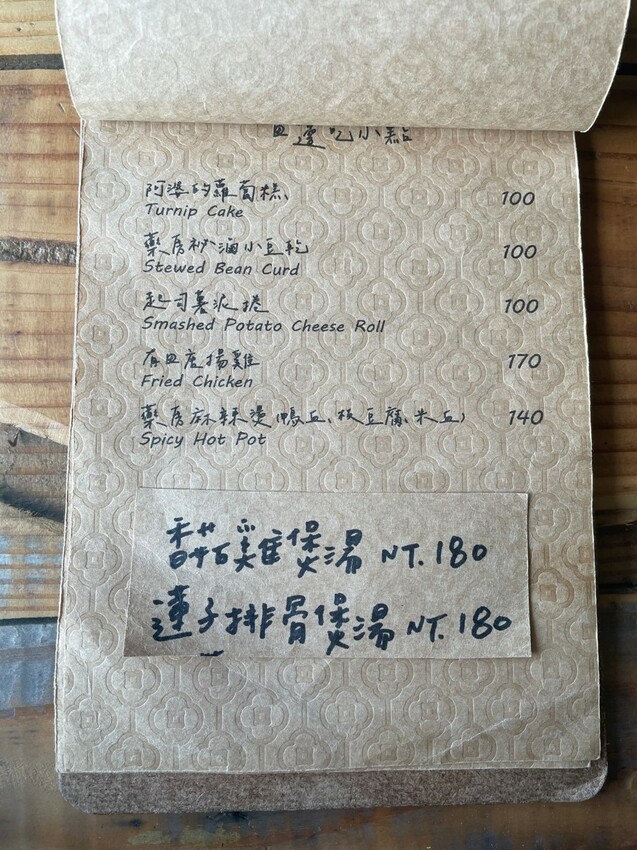 邊吃小點
阿婆的蘿蔔糕 100
Turnip Cake
藥房祕滷小豆乾 100
Stewed Bean Curd
起司薯泥捲 100
Smashed Potato Cheese Roll
唐揚雞 170
Fried Chicken
藥房麻辣燙(鴨血、板豆腐、米血) 140
Spicy Hot Pot
蒜香雞煲湯 NT.180
蓮子排骨煲湯 NT.180